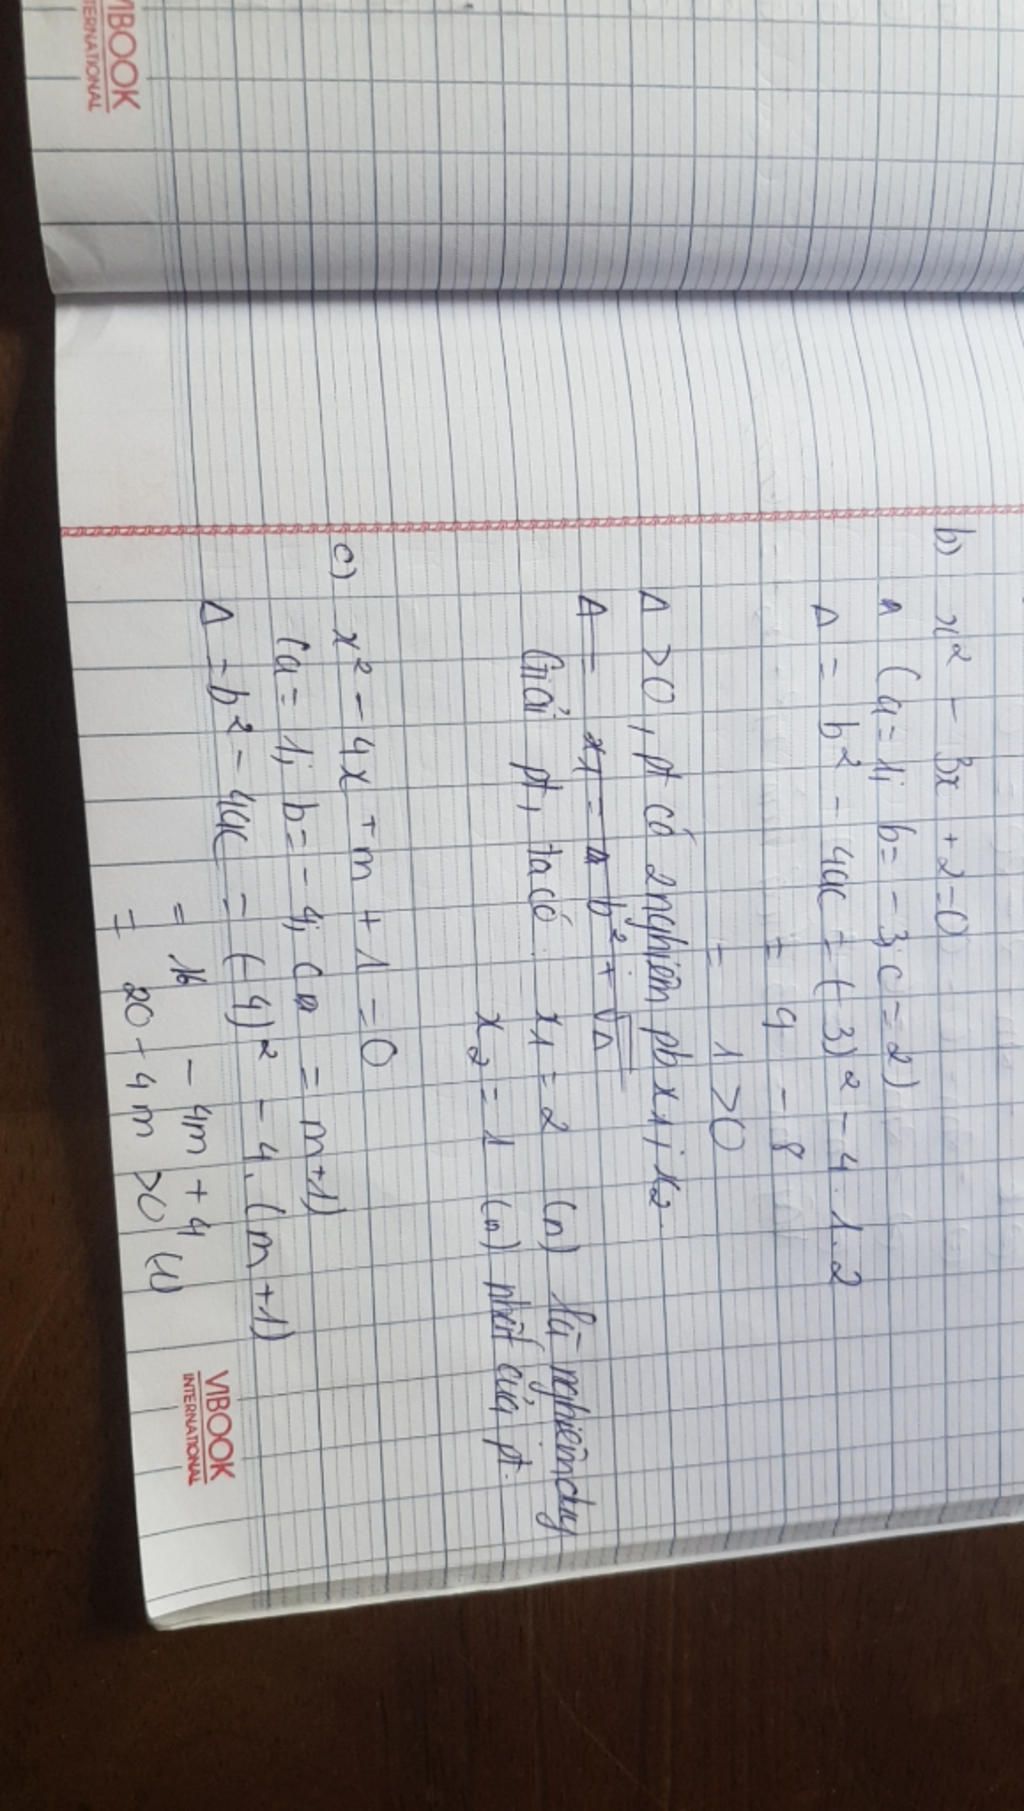 VIBOOK
INTERNATIONAL
b) x² - 3x + 2 = 0
(a = 1; b = -3; c = 2)
Δ = b² - 4ac = (-3)² - 4.1.2
= 9 - 8
= 1 > 0
Δ > 0, pt có 2 nghiệm pb x1; x2
Δ = x1 = b² + √Δ
Giải pt, ta có: x1 = 2 (n) là nghiệm duy
x2 = 1 (n) nhất của pt.
c) x² - 4x + m + 1 = 0
(a = 1; b = -4; c = m+1)
Δ = b² - 4ac = (-4)² - 4.(m+1)
= 16 - 4m + 4
= 20 - 4m > 0 (1)
VIBOOK
INTERNATIONAL